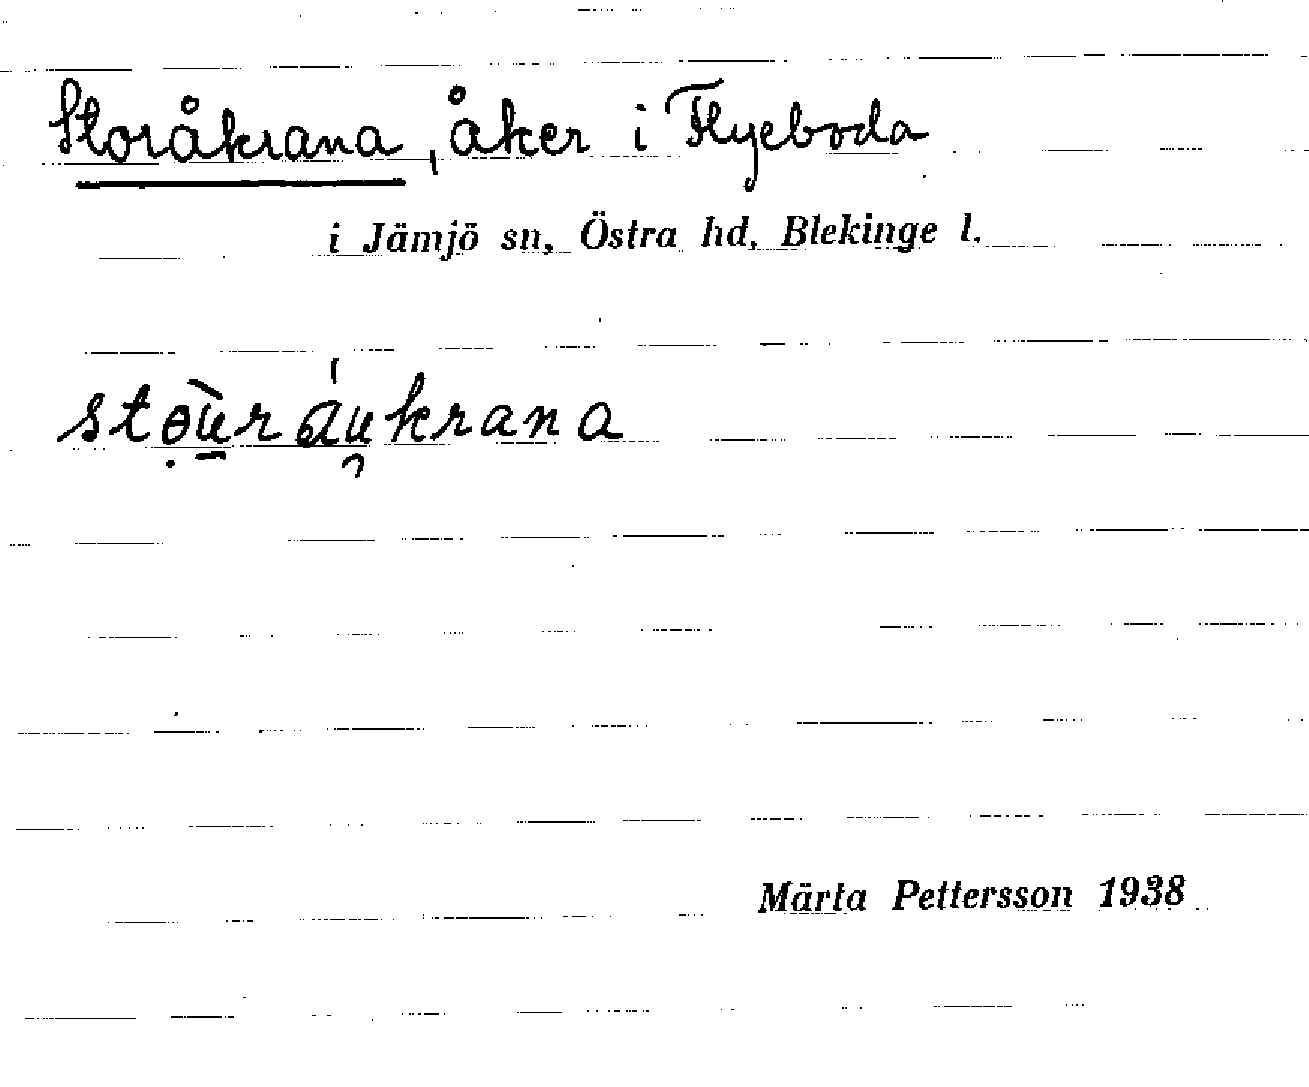 Storåkrana, åker i Flyeboda
i Jämjö sn, Östra hd, Blekinge l.
stòu̱ráukrana
Märta Pettersson 1938